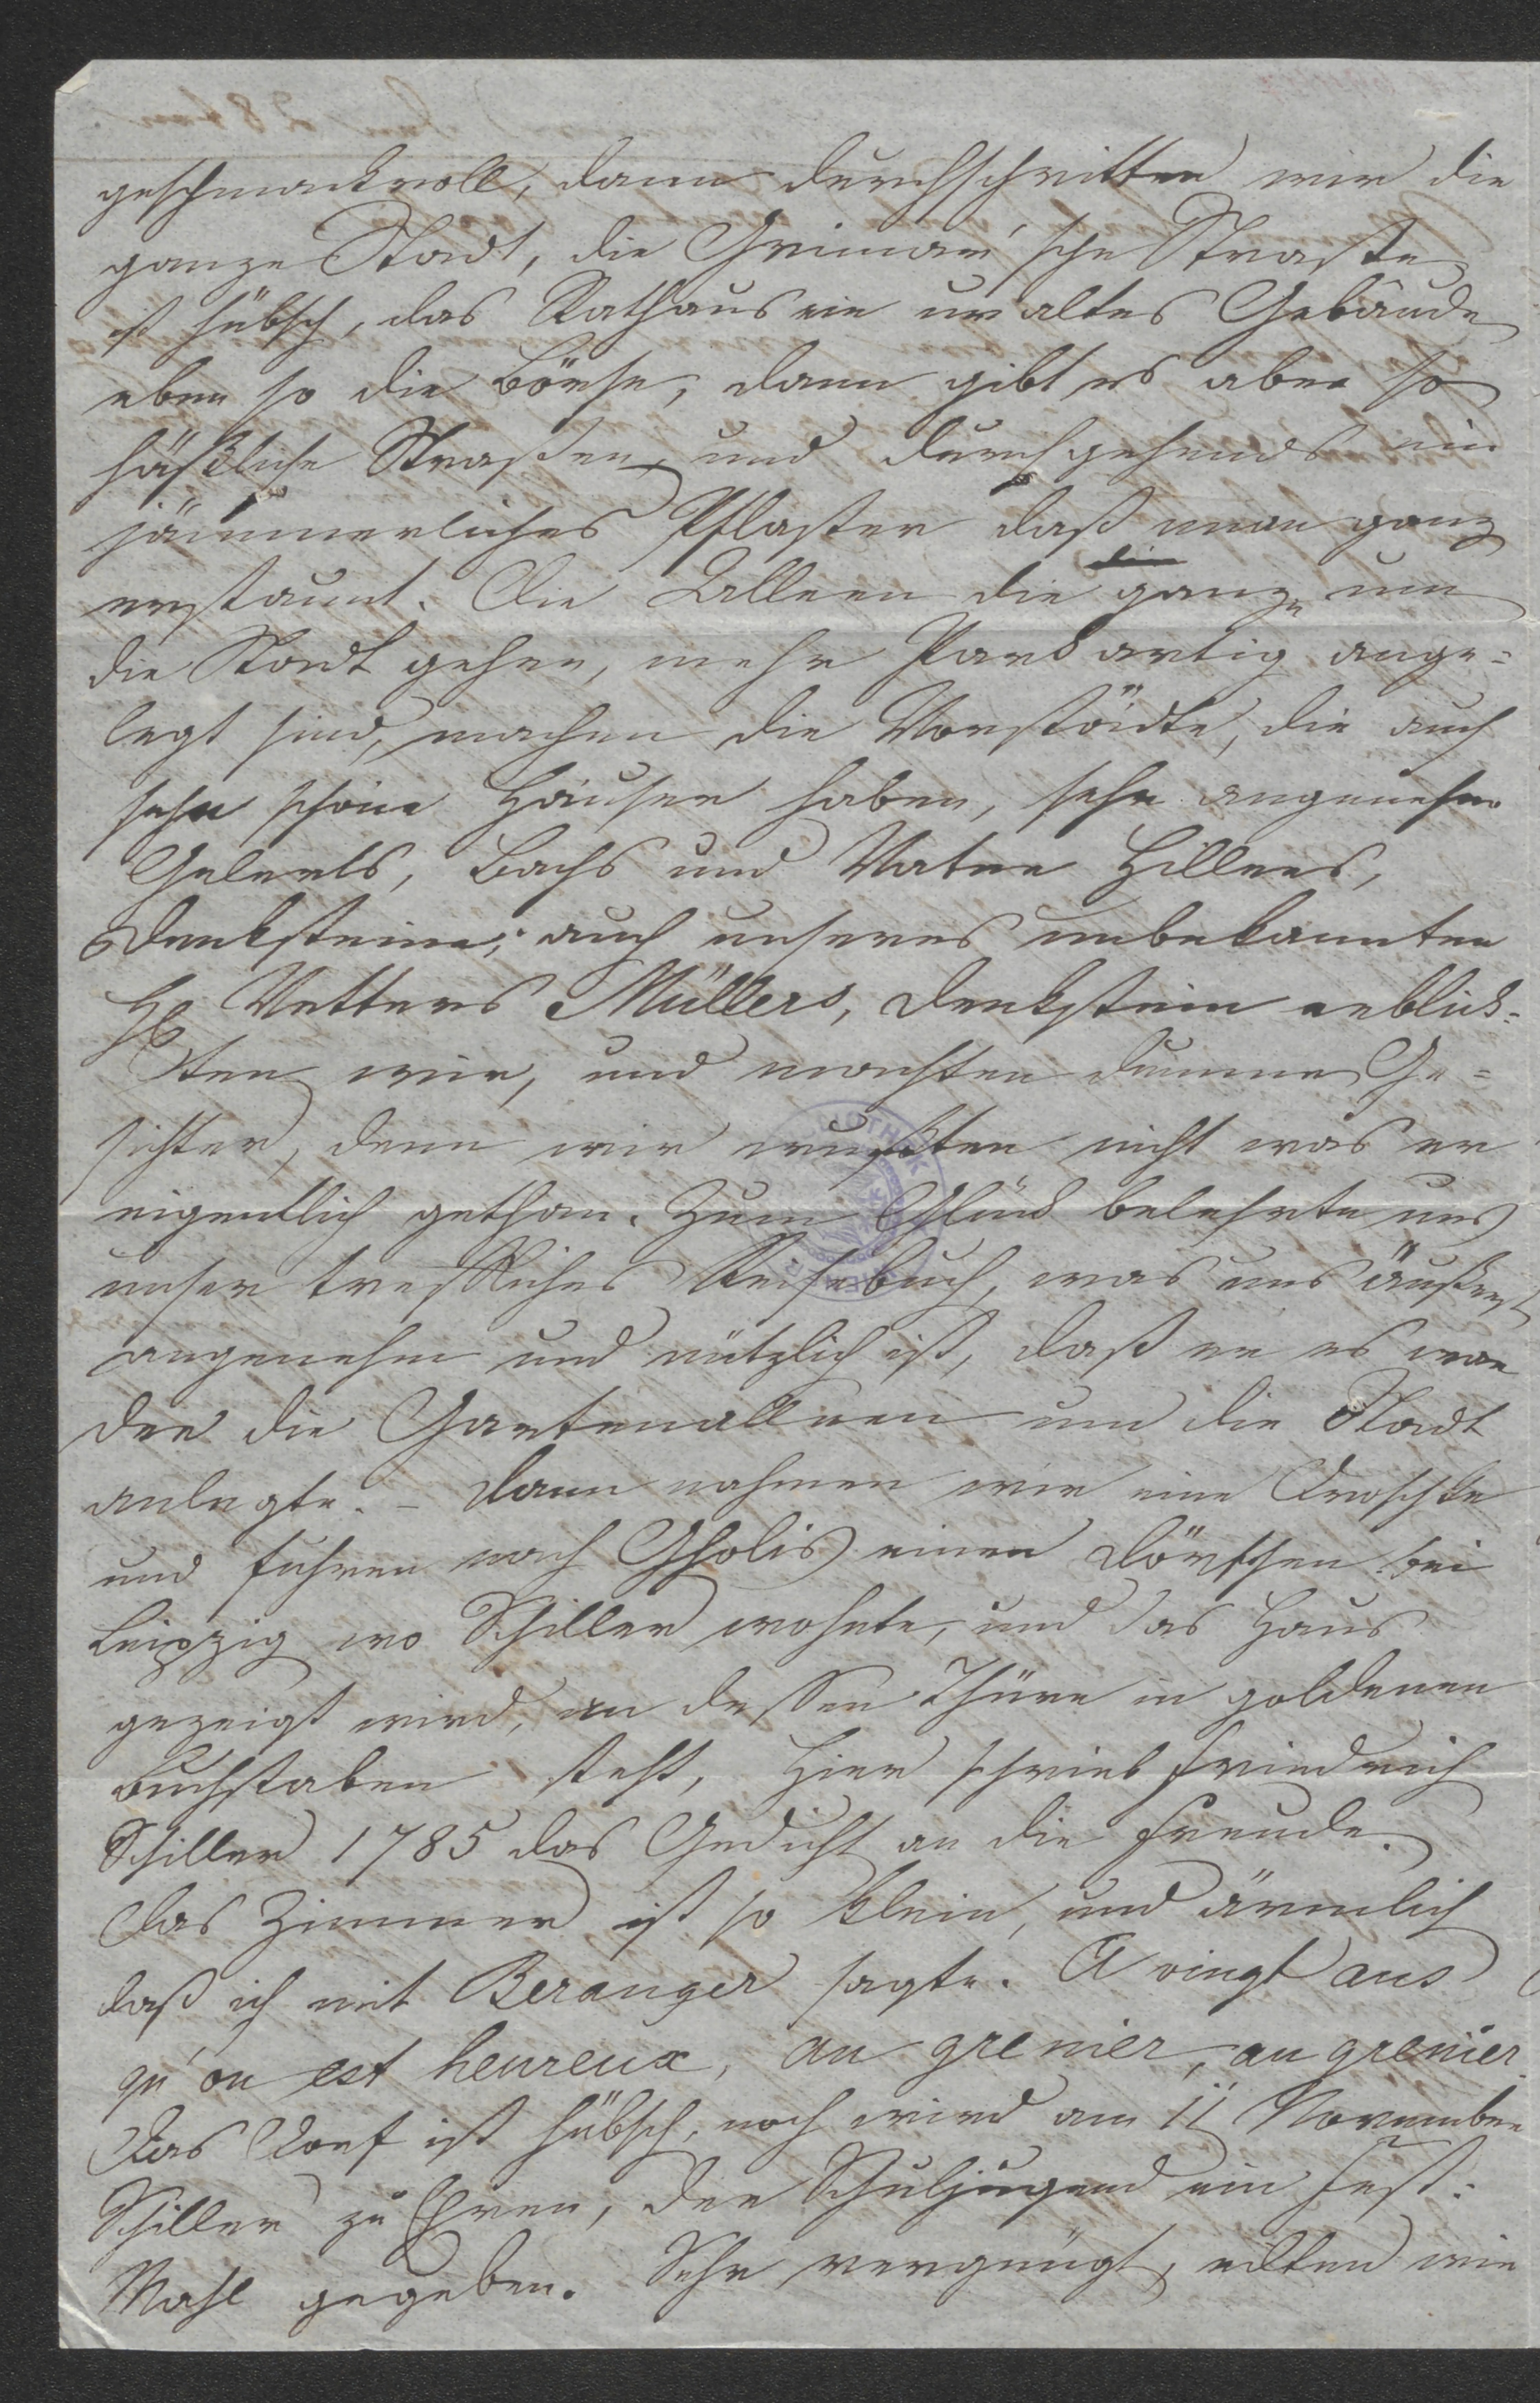 geschmackvoll, dann durchschritten wir die
ganze Stadt, die Grimai'sche Straße
ist hübsch, das Rathaus ein uraltes Gebäude
eben so die Börse, dann gibt es aber so
häßliche Straßen, und durchgehends ein
jämmerliches Pflaster daß man ganz
erstaunt. Die Alleen die ganz um
die Stadt gehen, mehr Parkartig ange=
legt sind, machen die Vorstädte, die auch
sehr schöne Häuser haben, sehr angenehm
Gelerts, Bachs und Vater Hillers,
Denksteine; auch unseres unbekannten
H Vetters Müllers, Denkstein erblick=
ten wir, und machten dumme Ge=
sichter, denn wir wußten nicht was er
eigentlich gethan. Zum Glück belehrte uns
unser treffliches Reisebuch, was uns äußerst
angenehm und nützlich ist, daß er es war
der die Gartenalleen um die Stadt
anlegte. – Dann nahmen wir eine Droschke
und fuhren nach Gholis einen Dörfchen bei
Leipzig wo Schiller wohnte, und das Haus
gezeigt wird, an dessen Thüre in goldenen
Buchstaben steht, Hier schrieb Friedrich
Schiller 1785 das Gedicht an die Freude.
Das Zimmer ist so klein, und ärmlich
daß ich mit Beranger sagte. A vingt ans
qu'on est heureux, au grenier, au grenier.
Das Dorf ist hübsch, noch wird am 11 November
Schiller zu Ehren, der Schuljugend ein Fest=
Mahl gegeben. Sehr vergnügt, eilten wir